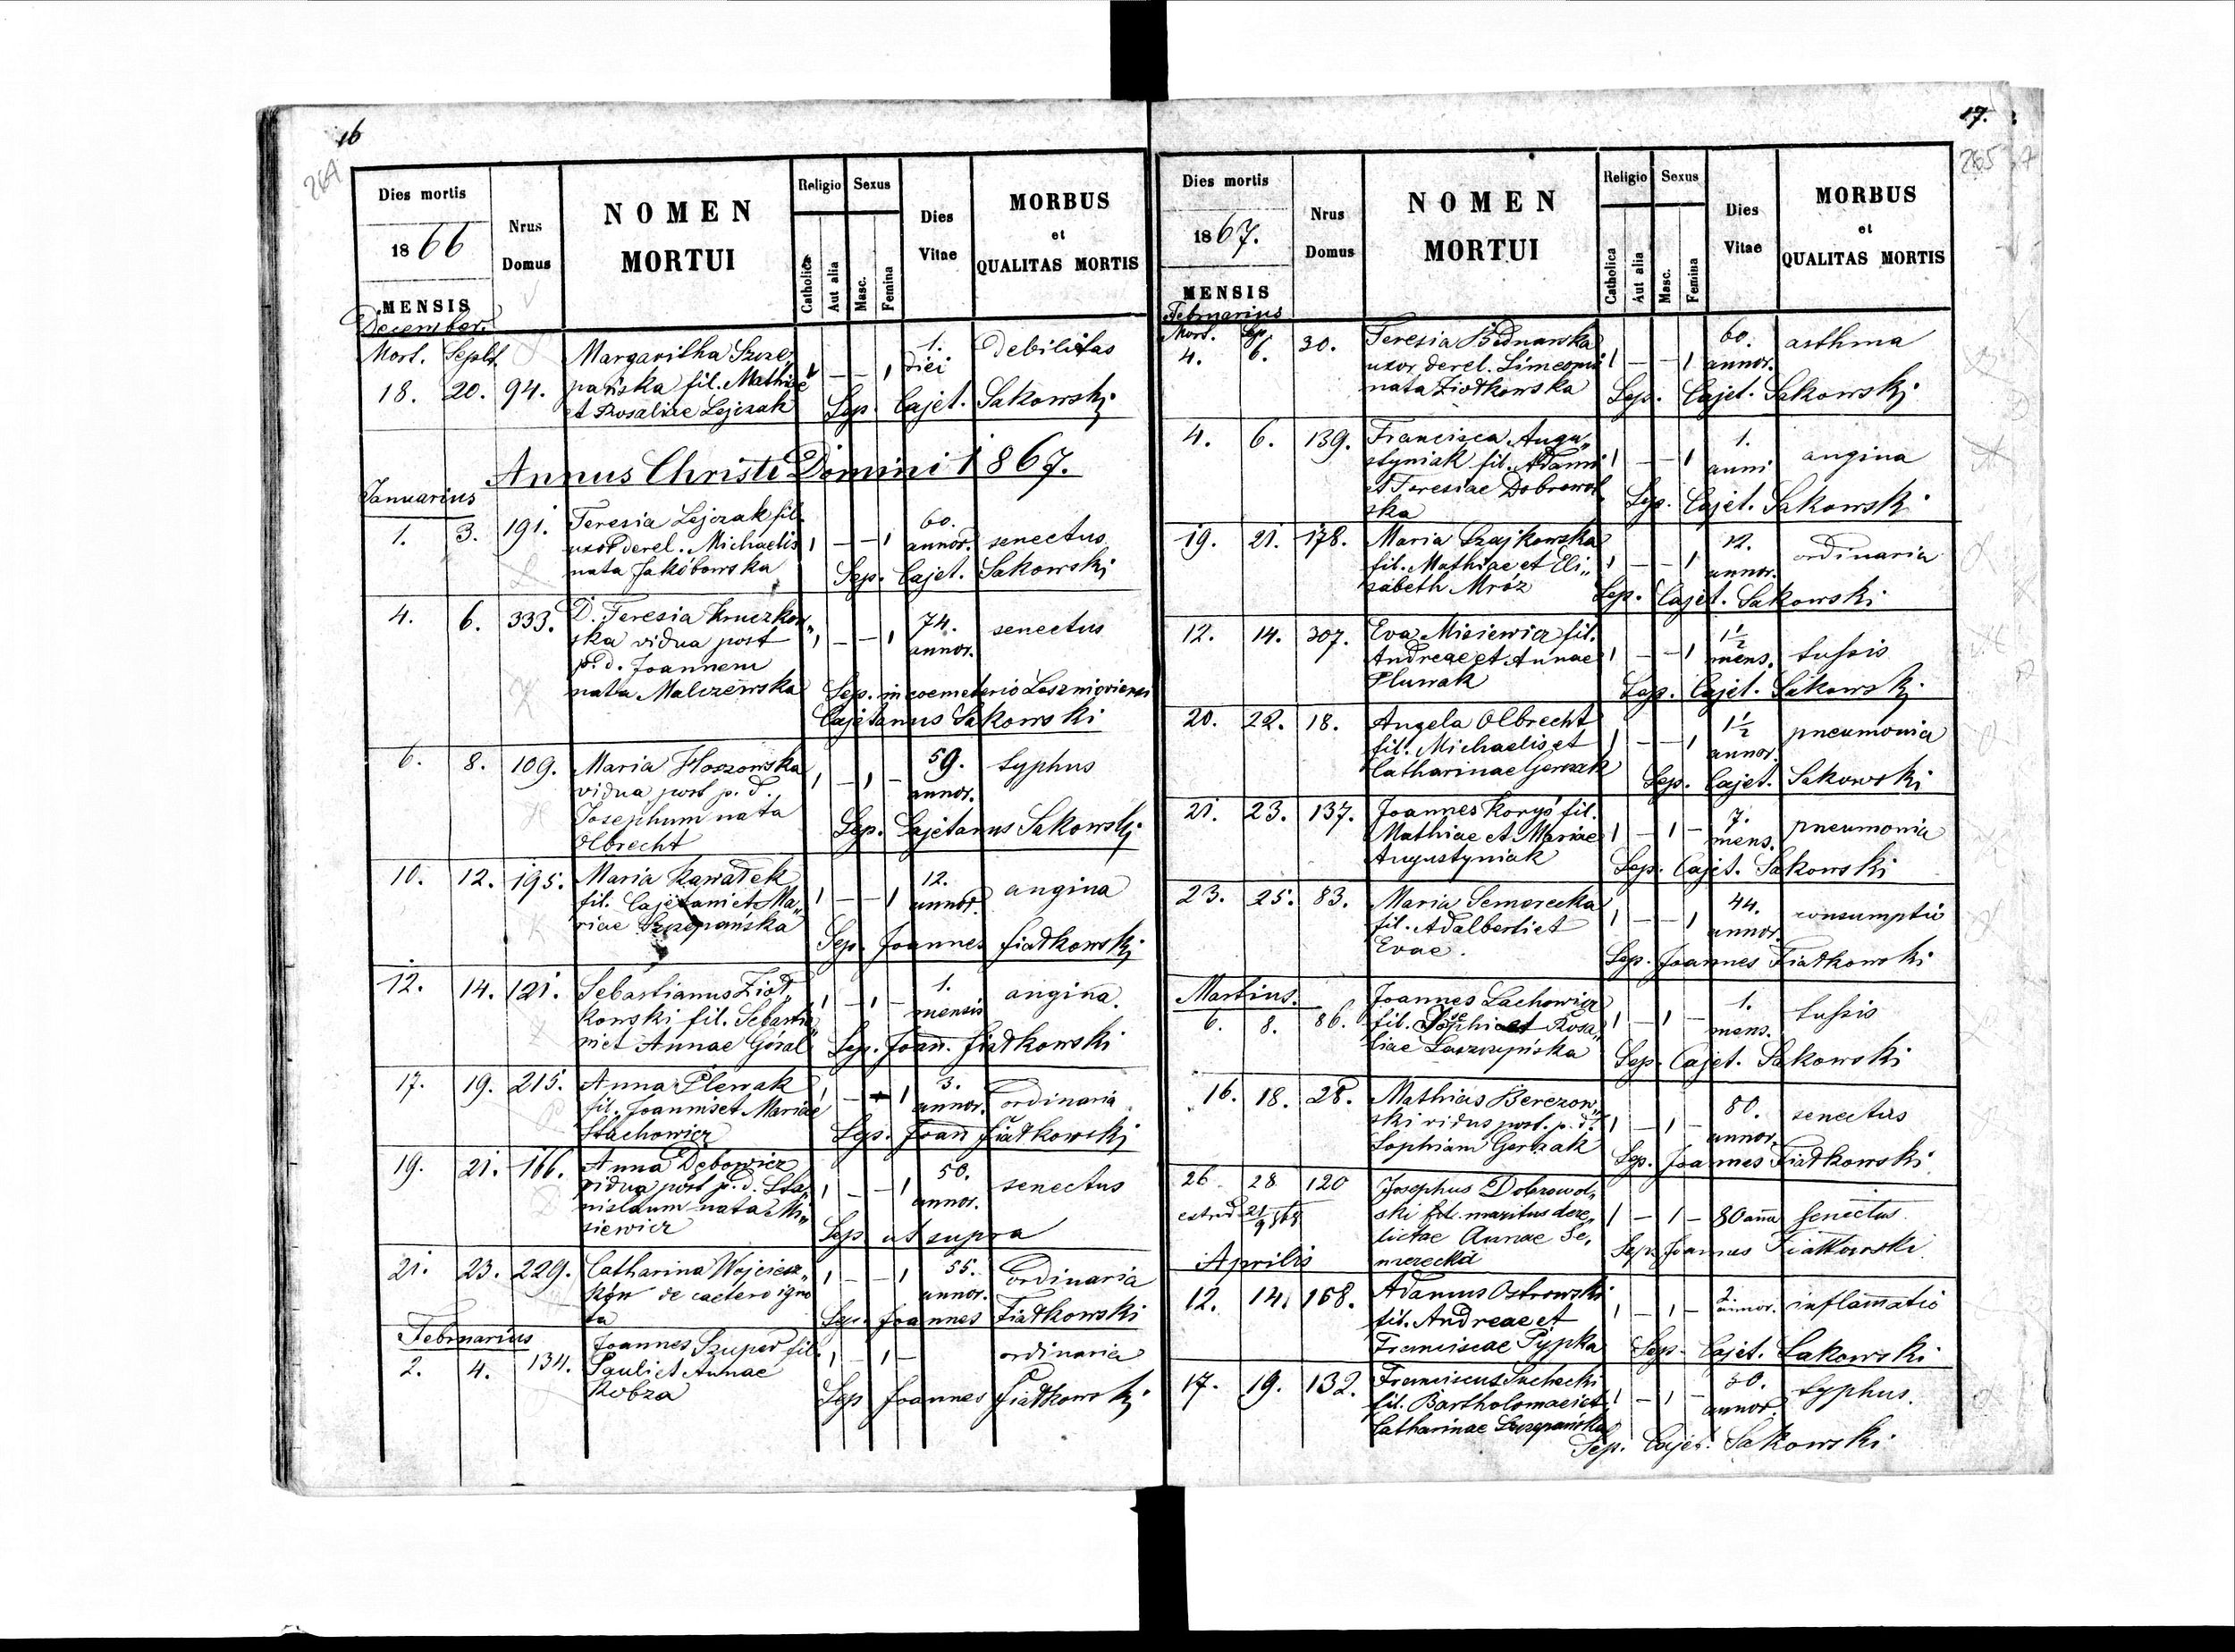 16
264
Dies mortis
1866
MENSIS
December
Nrus
Domus
NOMEN
MORTUI
Religio
Sexus
Catholica
Aut alia
Masc.
Femina
Dies
Vitae
MORBUS
et
QUALITAS MORTIS
Mort. Sepult.
18. 20. 94.
Margaritha Szcze„
pańska fil. Mathiae
et Rosaliae Lejczak
1 — — 1
1.
diei
Debilitas
Sep. Cajet. Sakowski
Annus Christi Domini 1867.
Januarius
1. 3. 191.
Teresia Lejczak fil.
uxor derel. Michaelis
nata Jakóbowska
1 — — 1
60.
annor.
senectus
Sep. Cajet. Sakowski
4. 6. 333.
D. Teresia Kruczkow„
ska vidua post
p. d. Joannem
nata Malczewska
1 — — 1
74.
annor.
senectus
Sep. in coemeterio Lesznioviensi
Cajetanus Sakowski
6. 8. 109.
Maria Hoszowska
vidua post p. d.
Josephum nata
Olbrecht
1 — 1 —
59.
annor.
typhus
Sep. Cajetanus Sakowski
10. 12. 195.
Maria Kawałek
fil. Cajetani et Ma„
riae Szczepańska
1 — — 1
12.
annor.
angina
Sep. Joannes Fiałkowski
12. 14. 121.
Sebastianus Ziół„
kowski fil. Sebastia„
ni et Annae Góral
1 — 1 —
1.
mensis
angina.
Sep. Joan. Fiałkowski
17. 19. 215.
Anna Plewak
fil. Joannis et Mariae
Stachowicz
1 — — 1
3.
annor.
ordinaria
Sep. Joan Fiałkowski
19. 21. 166.
Anna Dębowicz
vidua post p. d. Sta„
nislaum nata Mi„
siewicz
1 — — 1
50.
annor.
senectus
Sep ut supra
21. 23. 229.
Catharina Wojciesz„
ków de caetero igno
ta
1 — — 1
55.
annor.
ordinaria
Sep. Joannes Fiałkowski
Februarius
2. 4. 134.
Joannes Szuper fil.
Pauli et Annae
Kobza
1 — 1 —
ordinaria
Sep Joannes Fiałkowski
17.
265
Dies mortis
1867.
MENSIS
Februarius
Nrus
Domus
NOMEN
MORTUI
Religio
Sexus
Catholica
Aut alia
Masc.
Femina
Dies
Vitae
MORBUS
et
QUALITAS MORTIS
Mort. Sep.
4. 6. 30.
Teresia Bednarska
uxor derel. Simeonis
nata Ziółkowska
1 — — 1
60.
annor.
asthma
Sep. Cajet. Sakowski
4. 6. 139.
Francisca Augu„
styniak fil. Adami
et Teresiae Dobrowol
ska
1 — — 1
1.
anni
angina
Sep. Cajet. Sakowski
19. 21. 178.
Maria Szajkowska
fil. Mathiae et Eli„
sabeth Mróz
1 — — 1
12.
annor.
ordinaria
Sep. Cajet. Sakowski
12. 14. 307.
Eva Misiewicz fil.
Andreae et Annae
Pluwak
1 — — 1
1½
mens.
tussis
Sep. Cajet. Sakowski
20. 22. 18.
Angela Olbrecht
fil. Michaelis et
Catharinae Gerczak
1 — — 1
1½
annor.
pneumonia
Sep. Cajet. Sakowski
21. 23. 137.
Joannes Koryś fil.
Mathiae et Mariae
Augustyniak
1 — 1 —
7.
mens.
pneumonia
Sep. Cajet. Sakowski
23. 25. 83.
Maria Semerecka
fil. Adalberti et
Evae.
1 — — 1
44.
annor.
consumptio
Sep. Joannes Fiałkowski
Martius.
6. 8. 86.
Joannes Lachowicz
fil. Josephi et Rosa„
liae
1 — 1 —
1.
mens.
tussis
Sep. Cajet. Sakowski
16. 18. 28.
Mathias Berezow„
ski vidus post. p. d.
Sophiam Gerczak
1 — 1 —
80.
annor.
senectus
Sep. Joannes Fiałkowski
26 28 120
Josephus Dobrowol„
ski fil. maritus dere„
lictae Annae Se„
merecka
1 — 1 —
80 anno
senectus
Sep Joannes Fiałkowski
Aprilis
12. 14. 168.
Adamus Ostrowski
fil. Andreae et
Franciscae Pypka
1 — 1 —
2.
annor.
inflammatio
Sep. Cajet. Sakowski
17. 19. 132.
Franciscus Suchecki
fil. Bartholomaei et
Catharinae Szczepańska
1 — 1 —
30.
annor.
typhus.
Sep. Cajet. Sakowski